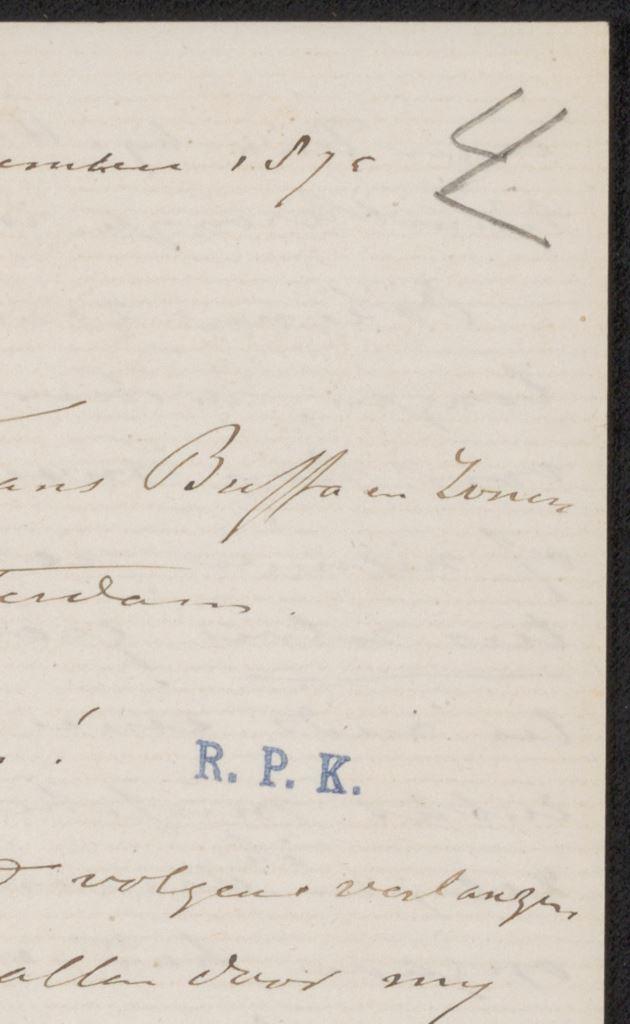 4
ember 1875
ans Buffa en Zonen
terdam.
!
R. P. K.
volgens verlangen
allen door my